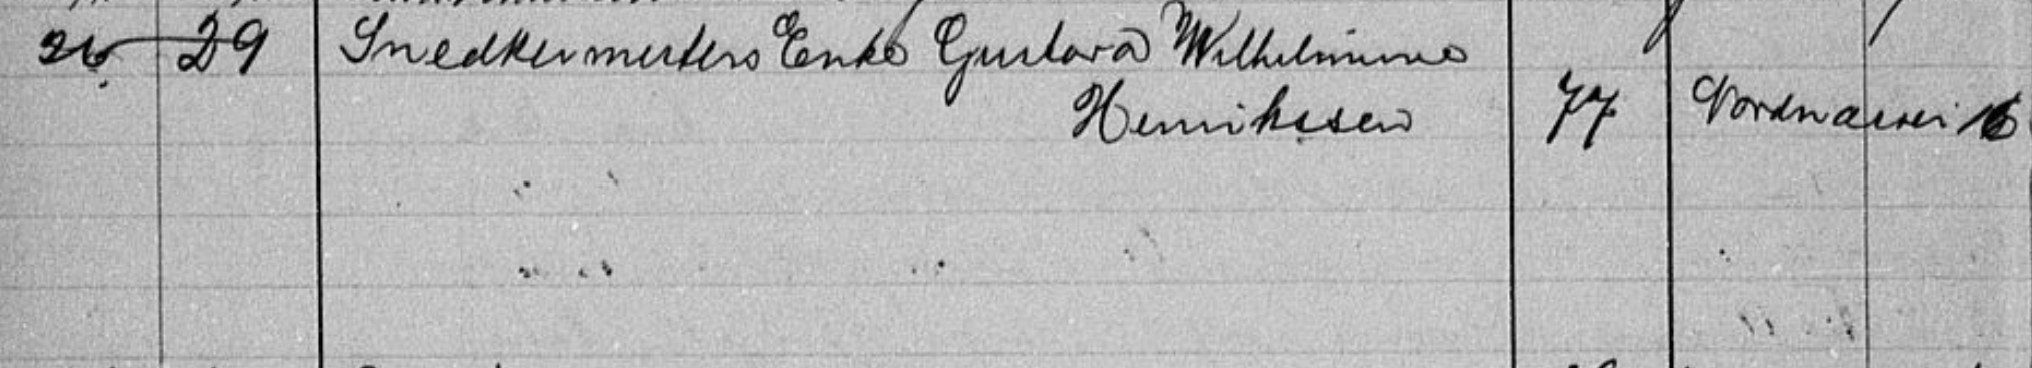 26. 29 Snedkermesters Enke Gustava Wilhelmine
Henrikssen 77 Nordnæsvei 16